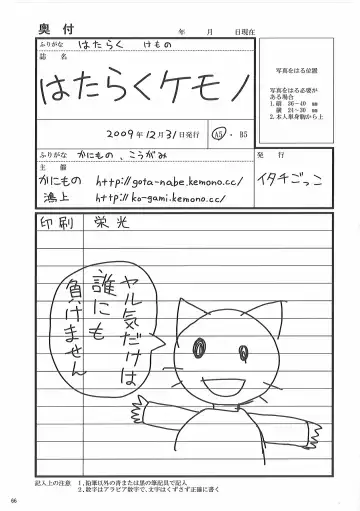 奥付
年 月 日現在
ふりがな はたらく けもの
誌名
はたらくケモノ
2009年12月31日発行
A5・B5
写真をはる位置
写真をはる必要が
ある場合
1.縦 36〜40 ㎜
横 24〜30 ㎜
2.本人単身胸から上
ふりがな かにもの、こうがみ
主催
かにもの http://gota-nabe.kemono.cc/
鴻上 http://ko-gami.kemono.cc/
発行
イタチごっこ
印刷 栄光
ヤル気だけは
誰にも
負けません
記入上の注意 1.鉛筆以外の青または黒の筆記具で記入
2.数字はアラビア数字で、文字はくずさず正確に書く
66